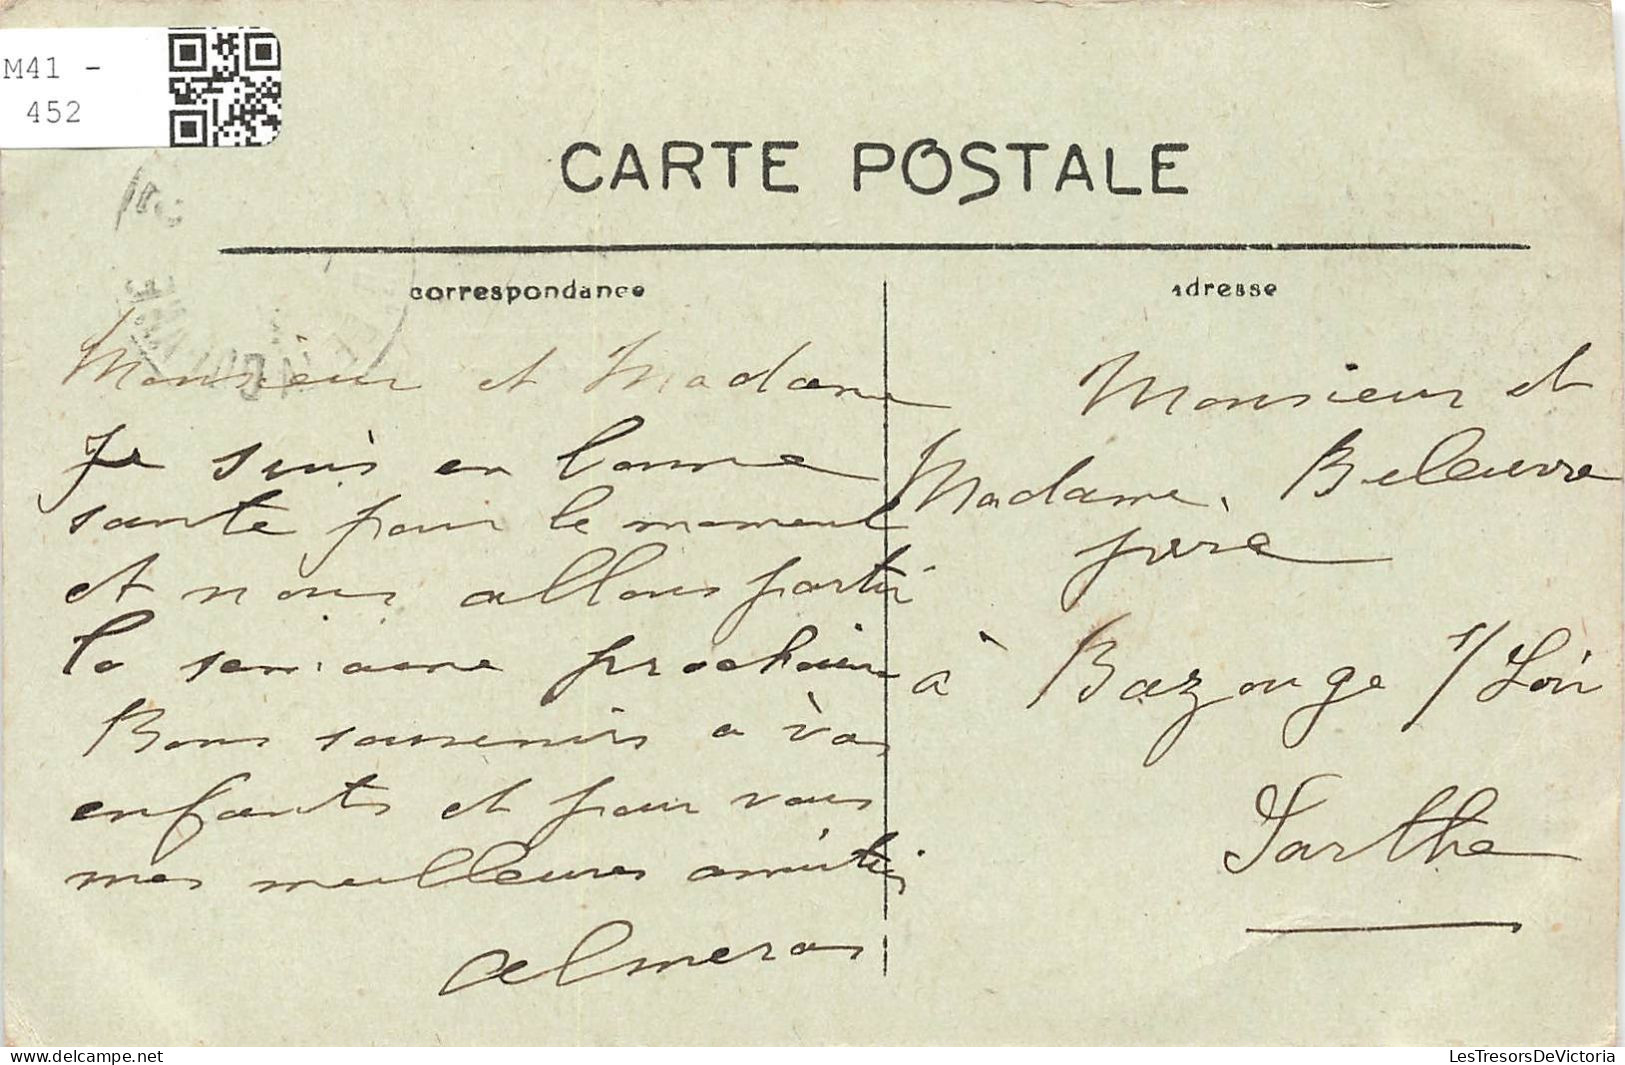 M41 -
452
CARTE POSTALE
correspondance
adresse
Monsieur et Madame
Je suis en bonne
sante pour le moment
et nous allons partir
la semaine prochaine
Bons souvenirs a vos
enfants et pour vous
mes meilleures amitiés
Almeras
Monsieur et
Madame Beleuvre
père
à Bazouge s/ Loir
Sarthe
delcampe.net
LesTresorsDeVictoria